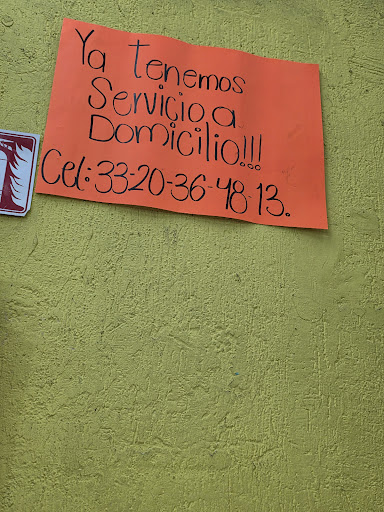 Ya tenemos
Servicio a
Domicilio!!!
Cel: 33-20-36-48-13.